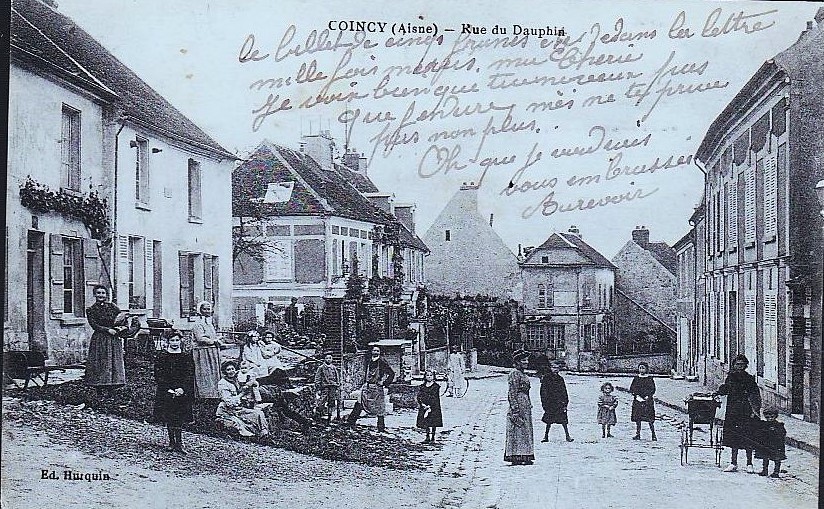 COINCY (Aisne) — Rue du Dauphin
le billet de cinq francs est dedans la lettre
mille fois mercis, ma Cherie
Je vois bien que tu
pas
que
ne te prive
pas non plus.
Oh que je voudrais
vous embrasser
Aurevoir
Ed. Hurquin